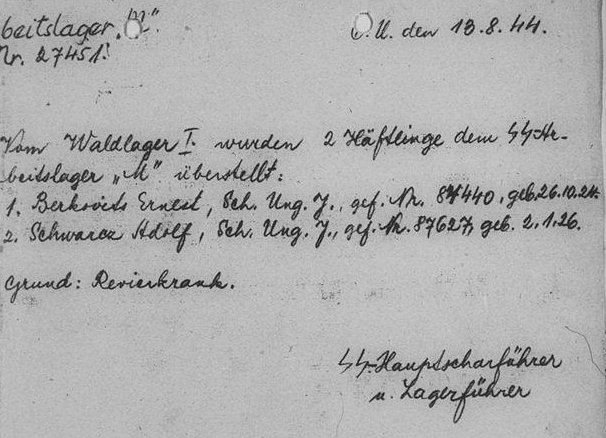 beitslager „M“.
Nr. 27451.
O.U. den 13.8.44.
Vom Waldlager I. wurden 2 Häftlinge dem SS-Ar-
beitslager „M“ überstellt:
1. Berkovits Ernest, Sch. Ung. J., gef. Nr. 84440, geb. 26.10.24.
2. Schwarcz Adolf, Sch. Ung. J., gef. Nr. 87627, geb. 2.1.26.
Grund: Revierkrank.
SS-Hauptscharführer
u. Lagerführer